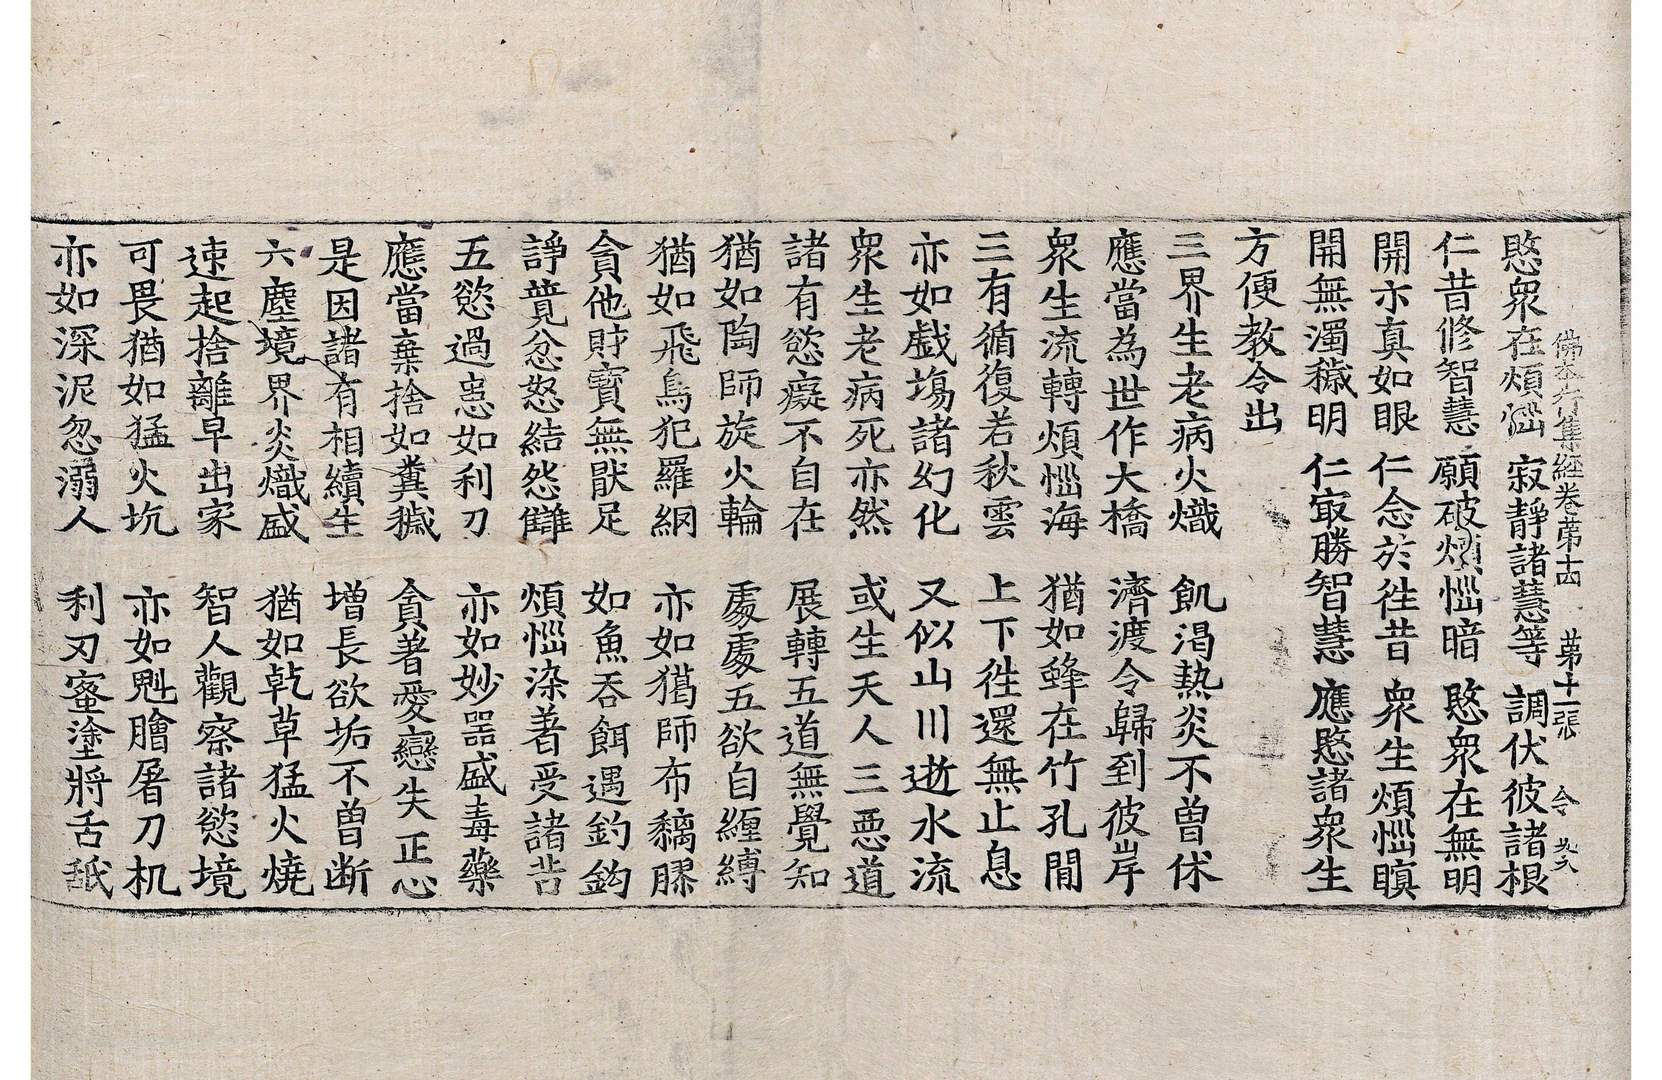 佛本行集經卷苐十四　苐十二張　令
愍衆在煩惱　寂靜諸慧等　調伏彼諸根
仁昔修智慧　願破煩惱暗　愍衆在無明
開示真如眼　仁念於徃昔　衆生煩惱瞑
開無濁穢明　仁㝡勝智慧　應愍諸衆生
方便教令出
三界生老病火熾　飢渴熱炎不曾休
應當為世作大橋　濟渡令歸到彼岸
衆生流轉煩惱海　猶如蜂在竹孔間
三有循復若秋雲　上下徃還無止息
亦如戲塲諸幻化　又似山川逝水流
衆生老病死亦然　或生天人三惡道
諸有慾癡不自在　展轉五道無覺知
猶如陶師旋火輪　處處五欲自纏縛
猶如飛鳥犯羅網　亦如獦師布黐膠
貪他財寶無猒足　如魚吞餌遇釣鈎
諍競忿怒結怨讎　煩惱染著受諸苦
五慾過患如利刀　亦如妙器盛毒藥
應當棄捨如糞穢　貪著愛戀失正心
是因諸有相續生　增長欲垢不曾断
六塵境界炎熾盛　猶如乾草猛火燒
速起捨離早出家　智人觀察諸慾境
可畏猶如猛火坑　亦如魁膾屠刀机
亦如深泥忽溺人　利刃蜜塗將舌舐